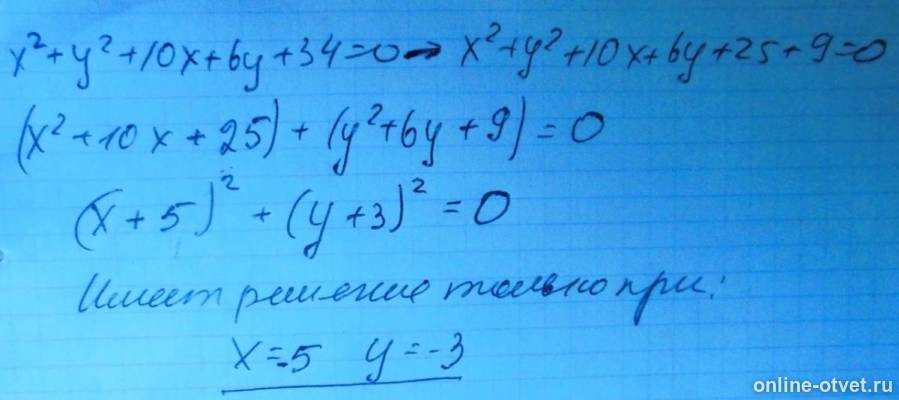 x²+y²+10x+6y+34=0→ x²+y²+10x+6y+25+9=0
(x²+10x+25)+(y²+6y+9)=0
(x+5)²+(y+3)²=0
Имеет решение только при:
x=-5 y=-3
online-otvet.ru